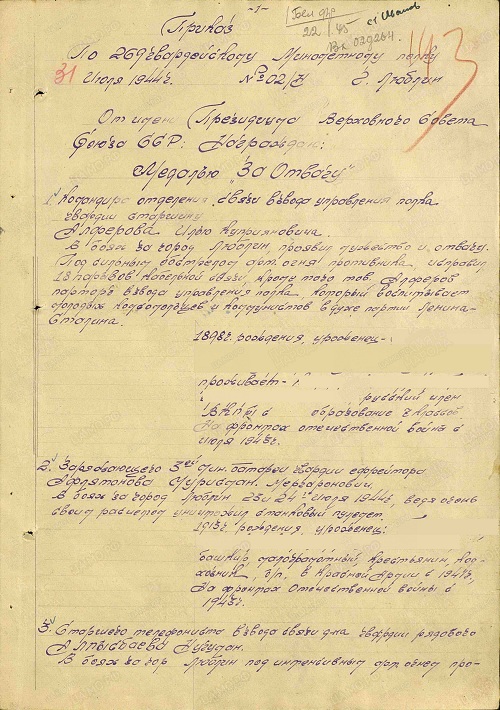 -1-
22/45
Приказ
По 269 Гвардейскому Минометному полку
31 Июля 1944г. № 02/н г. Люблин
143
От имени Президиума Верховного Совета
Союза ССР: Награждаю:
Медалью "За Отвагу"
1. Командира отделения связи взвода управления полка
гвардии старшину
Алферова Илью Куприяновича.
В боях за город Люблин, проявил мужество и отвагу.
Под сильным обстрелом арт. огня противника, исправил
18 порывов кабельной связи, кроме того тов. Алферов
парторг взвода управления полка, который воспитывает
молодых комсомольцев и коммунистов в духе партии Ленина-
Сталина.
1898г. рождения, уроженец-
проживает-
русский член
ВКП(б) с образование классов.
На фронтах отечественной войны с
июля 1943г.
2. Заряжающего 3ей мин. батареи гвардии ефрейтора
В боях за город Люблин 23 и 24 июля 1944г, ведя огонь
своим расчетом уничтожил станковый пулемет.
1913г. рождения, уроженец:
башкир, малограмотный, крестьянин, кол-
хозник, б/п, в Красной Армии с 1941г,
На фронтах Отечественной войны с
1943г.
3. Старшего телефониста взвода связи д-на гвардии рядового
В боях за гор. Люблин под интенсивным арт. огнем про-